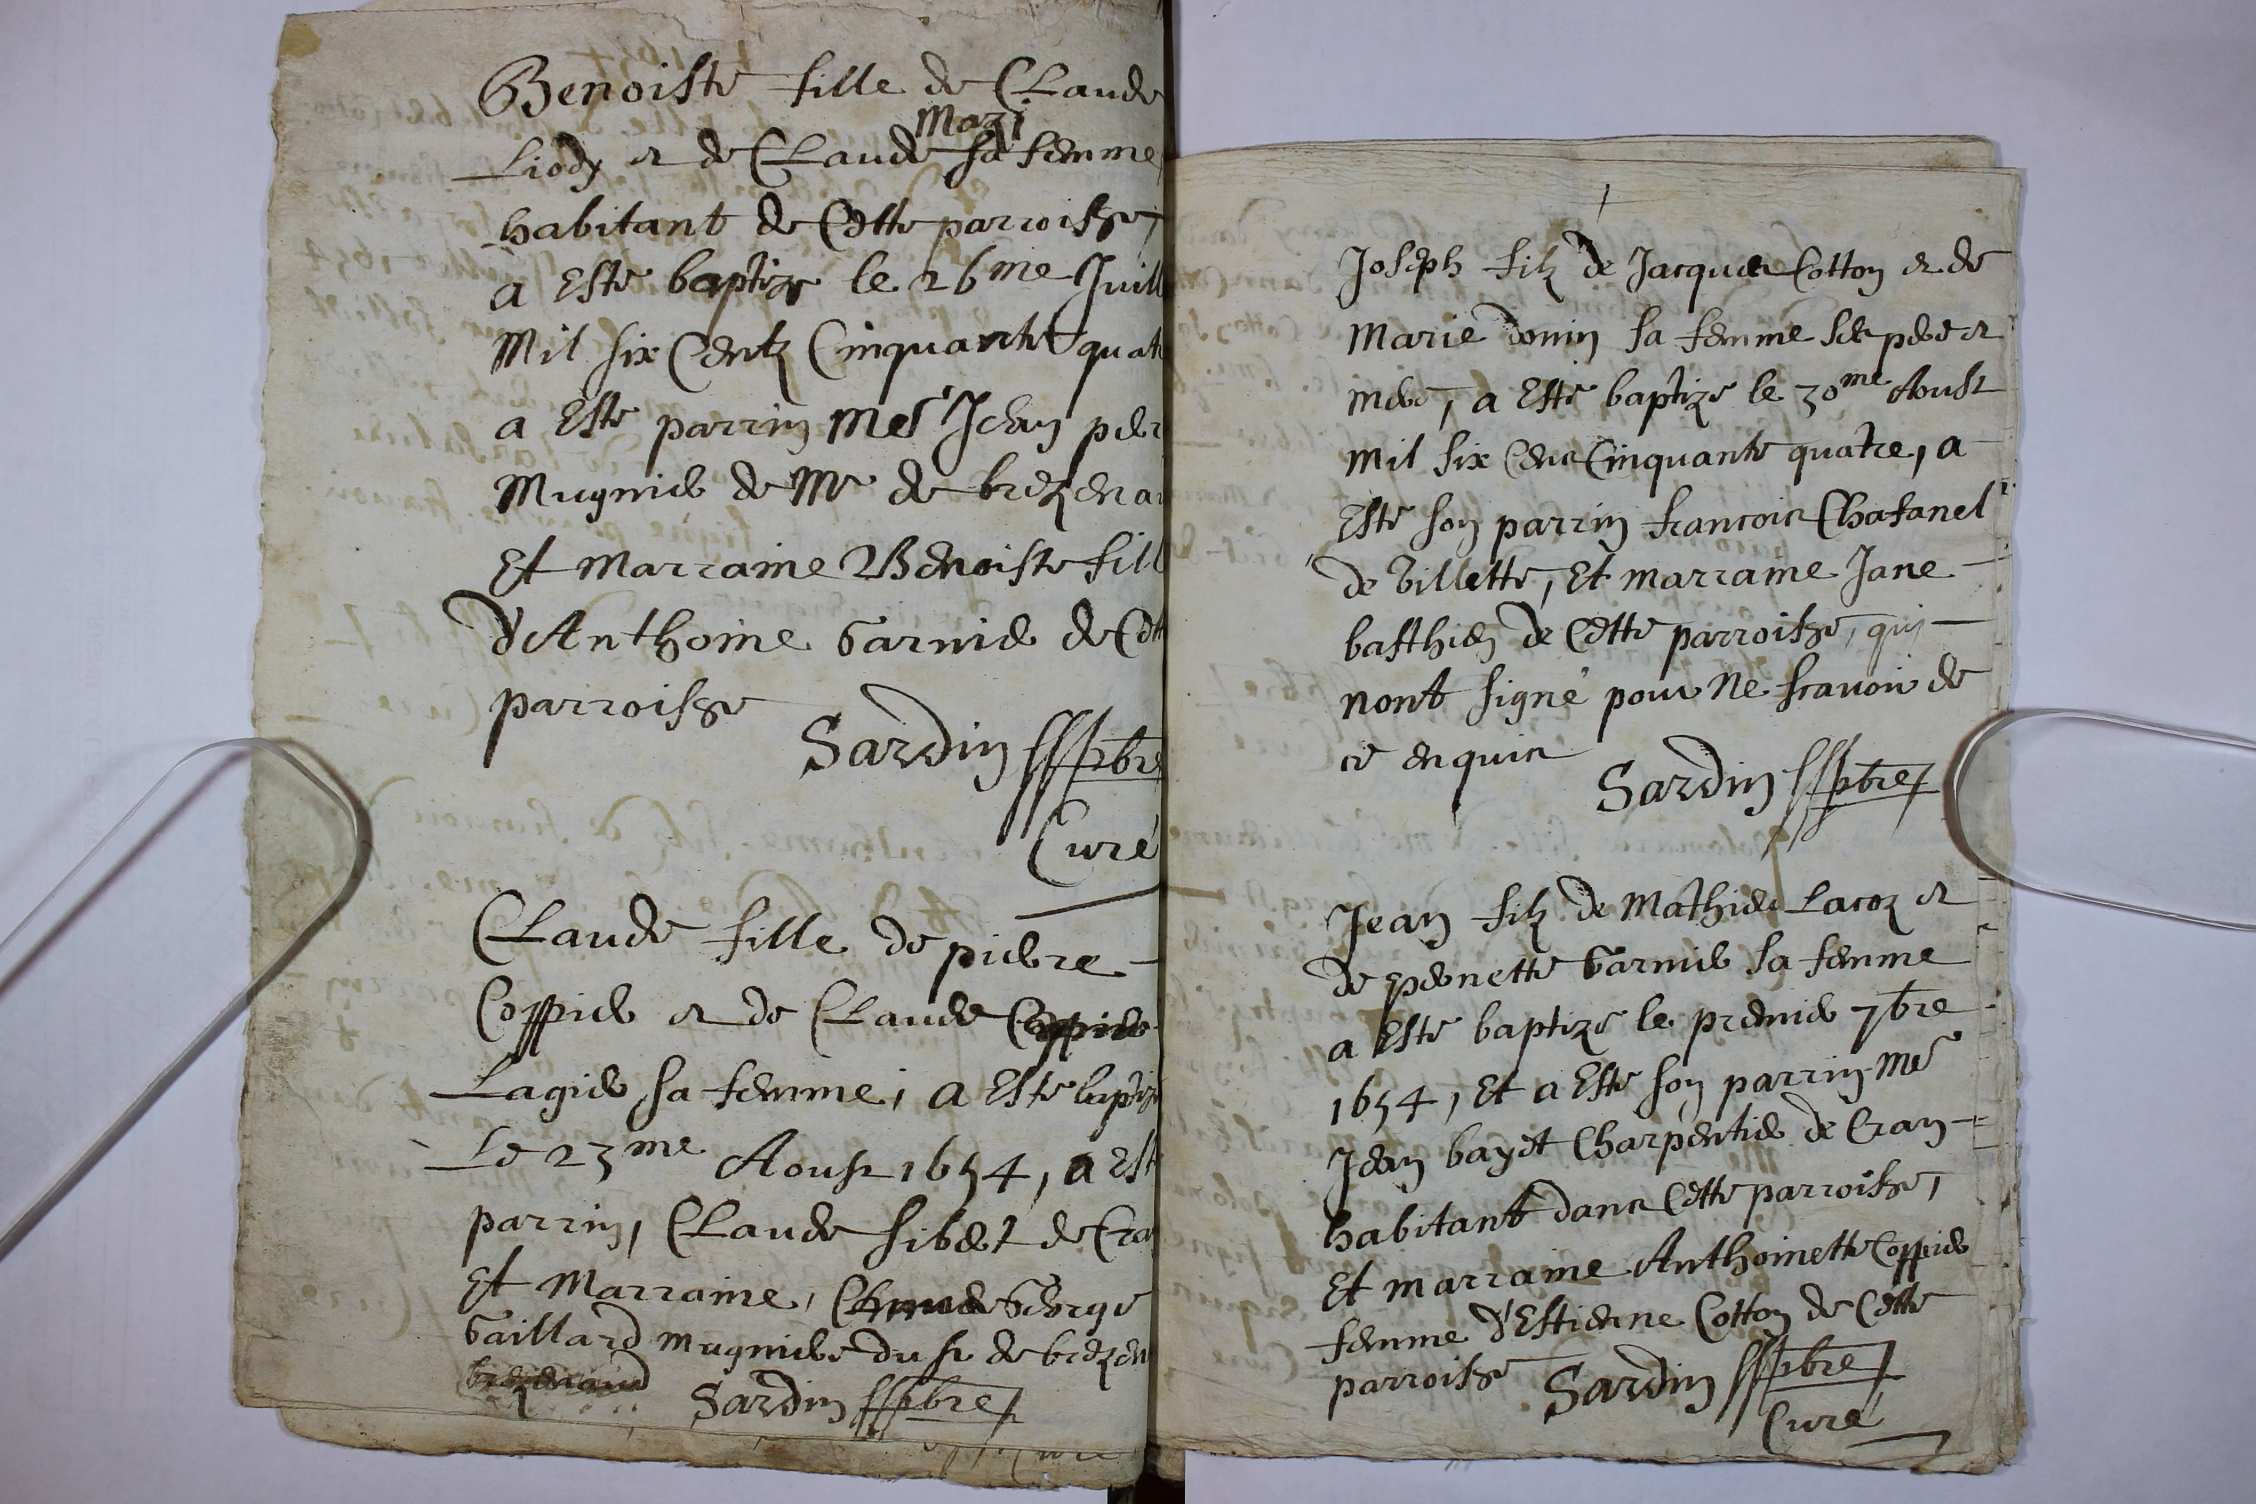 Benoiste fille de Claude
Mazj
Liody et de Claude sa femme
habitant de Cette parroisse,
a Este baptize le 26me Juill
Mil six Centz Cinquante quat
a Este parrin Mer Jean pier
Mugnier de Mr de brezena
Et Marraine Benoiste fill
d'Anthoine Garnier de Cett
parroisse
Sardin pbre
Curé
Claude fille de pierre
Coppier et de Claude Coppier
Lagier sa femme, a Este baptize
Le 23me Aoust 1654, a Est
parrin, Claude Sibert de Cra
Et Marraine, George
Gaillard mugniere du sr de brezen
Sardin pbre
Curé
Joseph filz de Jacques Cotton et de
Marie donin sa femme ses pere et
mere, a Esté baptize le 30me Aoust
Mil six Cens Cinquante quatre, a
Este son parrin francois Chatanel
de Villette, Et marraine Jane
basthien de Cette parroisse, qui
nont signé pour Ne scavoir de
ce enquis
Sardin pbre
Jean filz de Mathieu Lacoz et
de pernette Garnier sa femme
a Este baptize le premier 7bre
1654, Et a Este son parrin Me
Jean bayet Charpentier de Cran
habitant dans Cette parroisse,
Et marraine Anthoinette Coppier
femme d'Estienne Cotton de Cette
parroisse
Sardin pbre
Curé